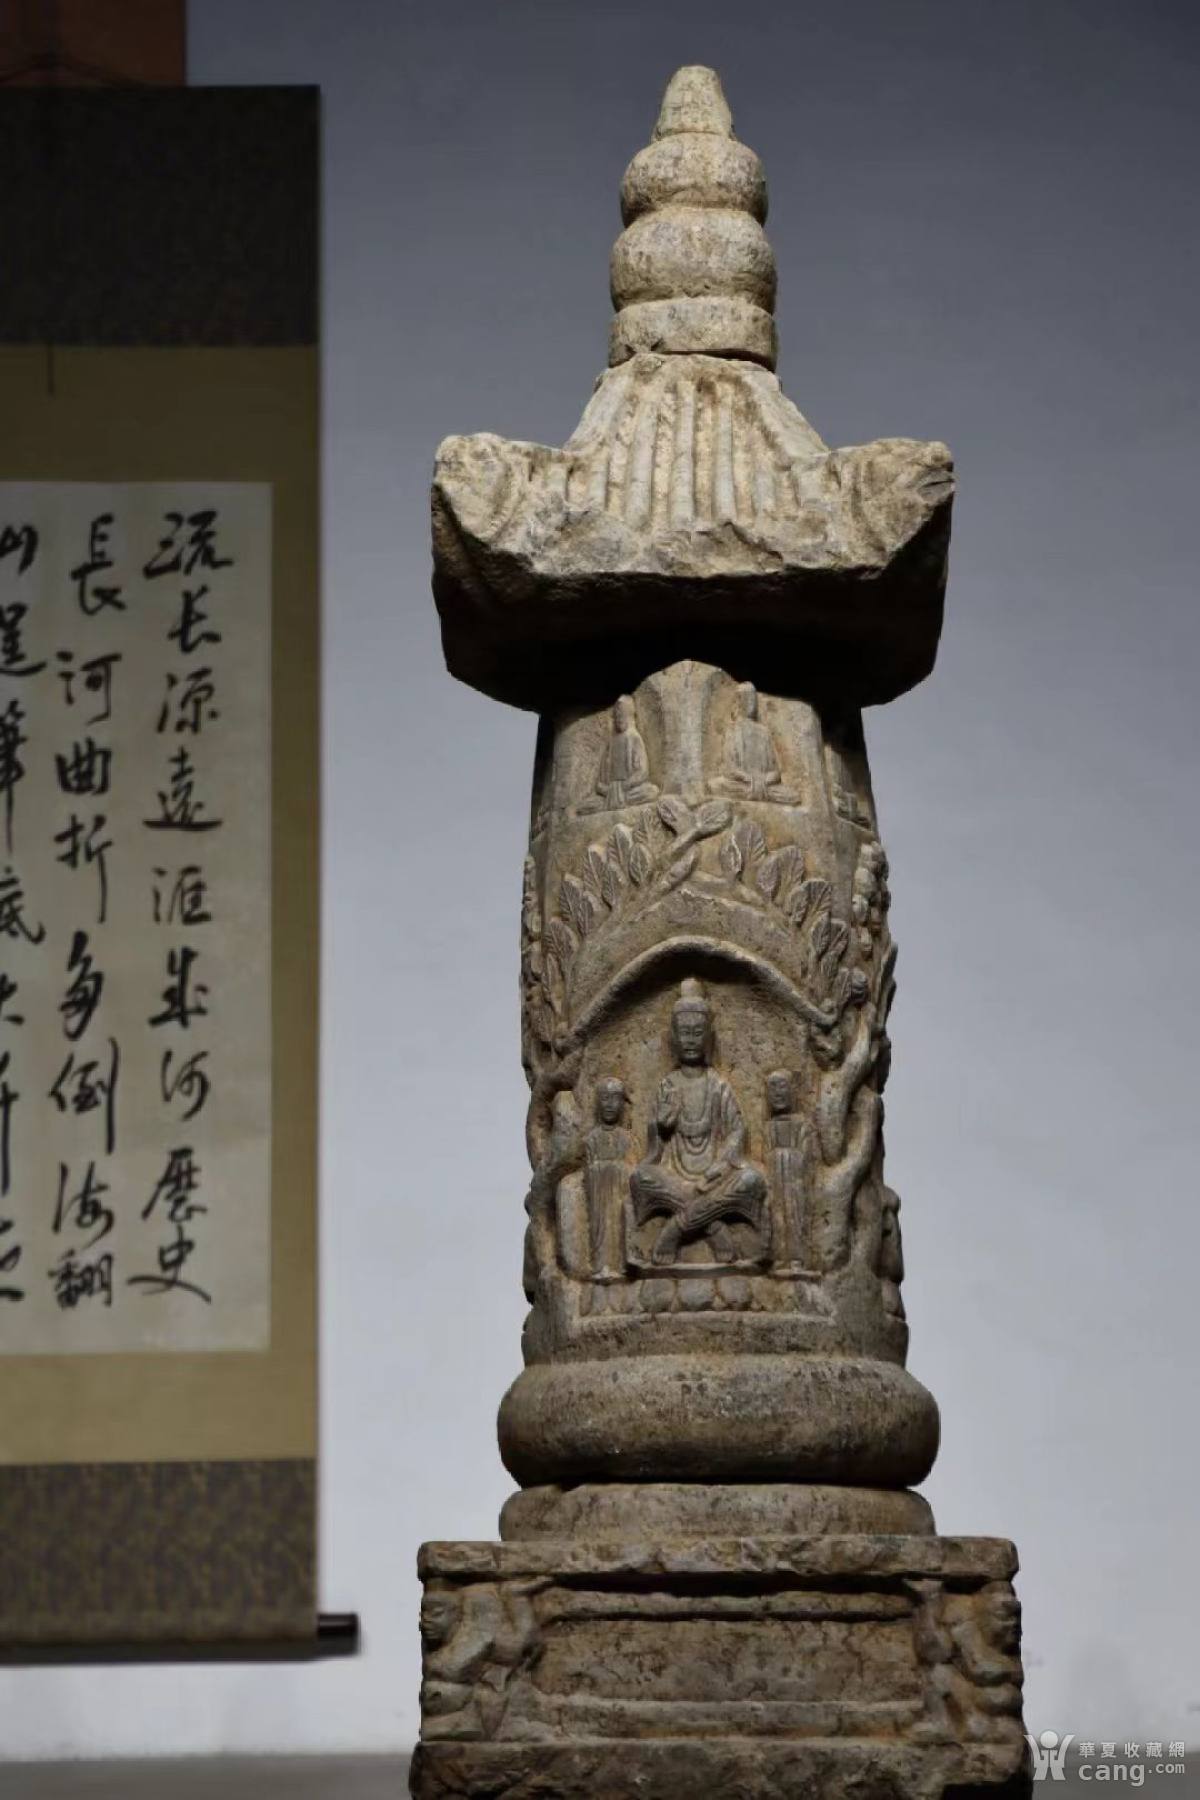 流长源遠汇成河歷史
長河曲折多倒海翻
山筆底
華夏收藏網
cang.com